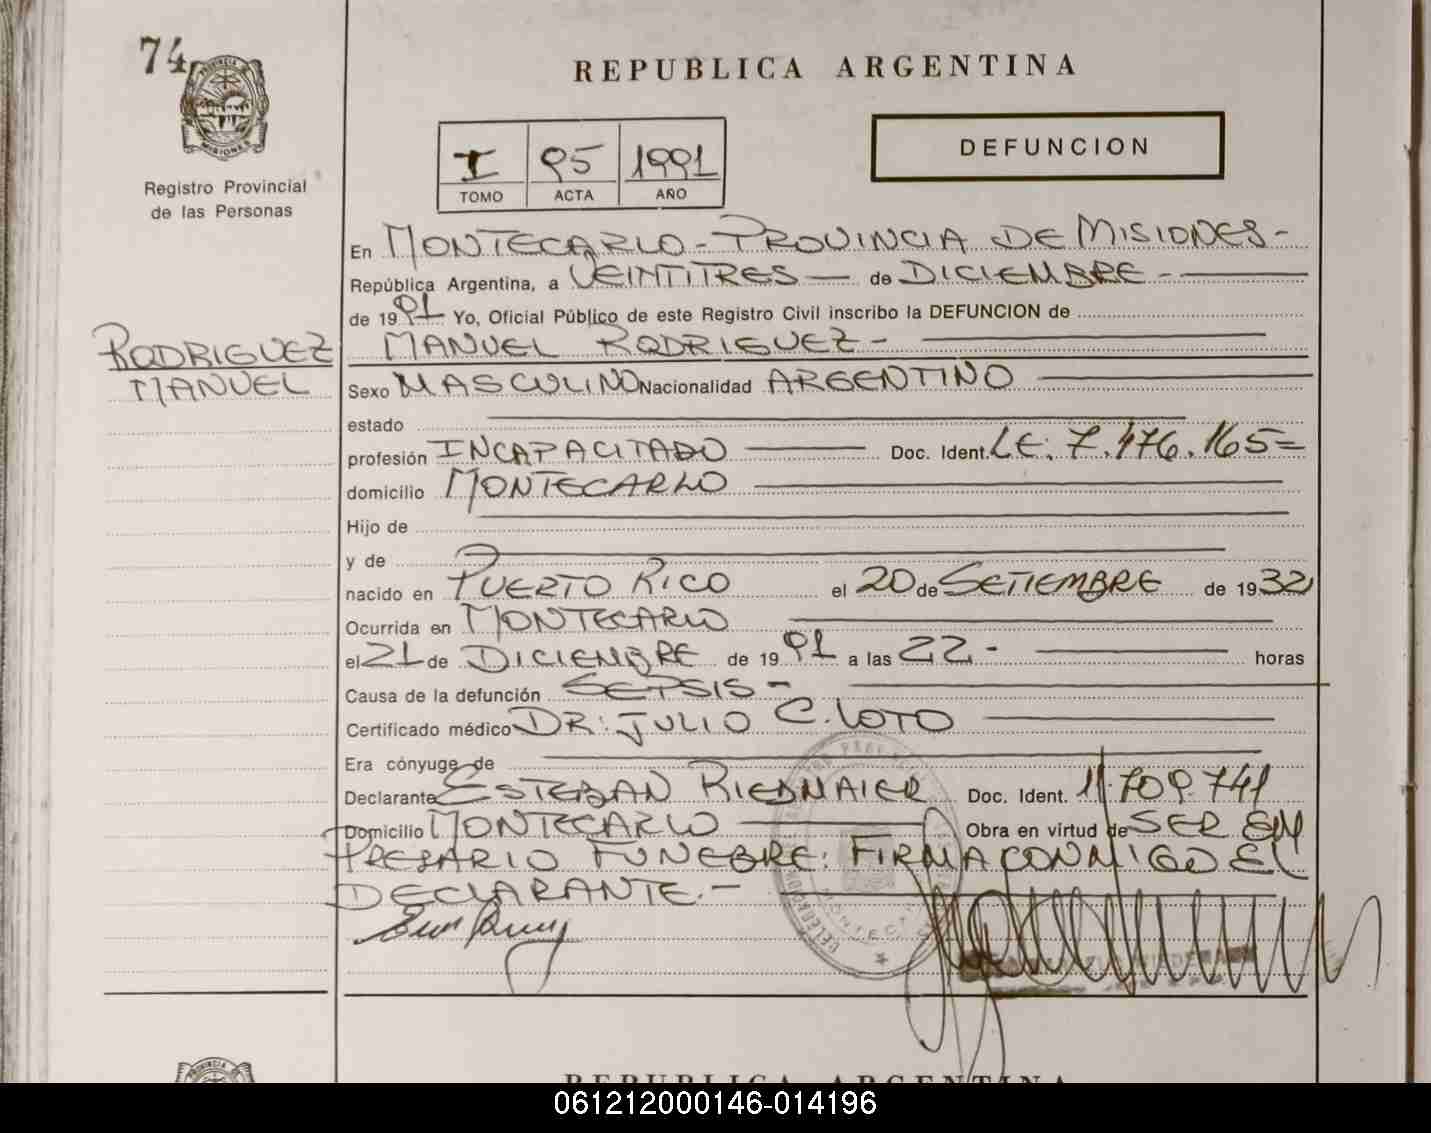 74
REPUBLICA ARGENTINA
I 95 1991
TOMO ACTA AÑO
DEFUNCION
PROVINCIA DE
MISIONES
Registro Provincial
de las Personas
En MONTECARLO - PROVINCIA DE MISIONES -
República Argentina, a VEINTITRES de DICIEMBRE -
de 1991 Yo, Oficial Público de este Registro Civil inscribo la DEFUNCION de
MANUEL RODRIGUEZ -
RODRIGUEZ
MANUEL
Sexo MASCULINO Nacionalidad ARGENTINO
estado
profesión INCAPACITADO Doc. Ident. L.E: 7.476.165=
domicilio MONTECARLO
Hijo de
y de
nacido en PUERTO RICO el 20 de SETIEMBRE de 1932
Ocurrida en MONTECARLO
el 21 de DICIEMBRE de 1991 a las 22 - horas
Causa de la defunción SEPSIS -
Certificado médico DR: JULIO C. LOTO
Era cónyuge de
Declarante ESTEBAN RIEDMAIER Doc. Ident. 11.709.741
Domicilio MONTECARLO Obra en virtud de SER EM
PRESARIO FUNEBRE: FIRMA CONMIGO EL
DECLARANTE. -
REPUBLICA ARGENTINA
061212000146-014196